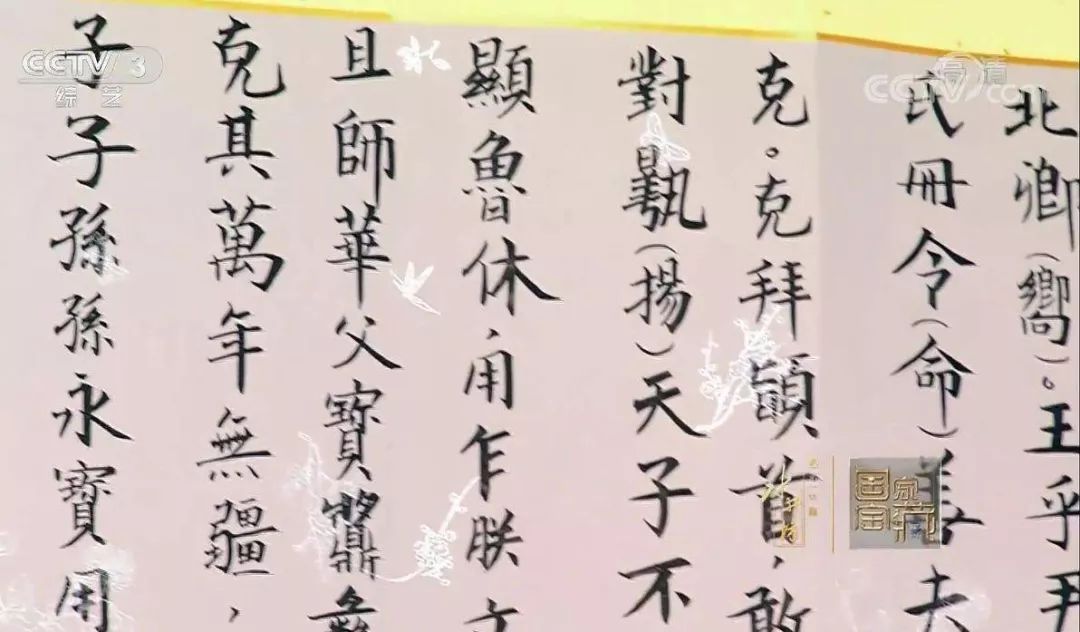 北卿(嚮)。王乎尹
氏冊令(命)善夫
克。克拜䭫首,敢
對(揚)天子不
顯魯休,用乍朕文
且師華父寶彝
克其萬年無疆,
子子孫孫永寶用
CCTV 3
综艺
CCTV.com
高清
国家宝藏